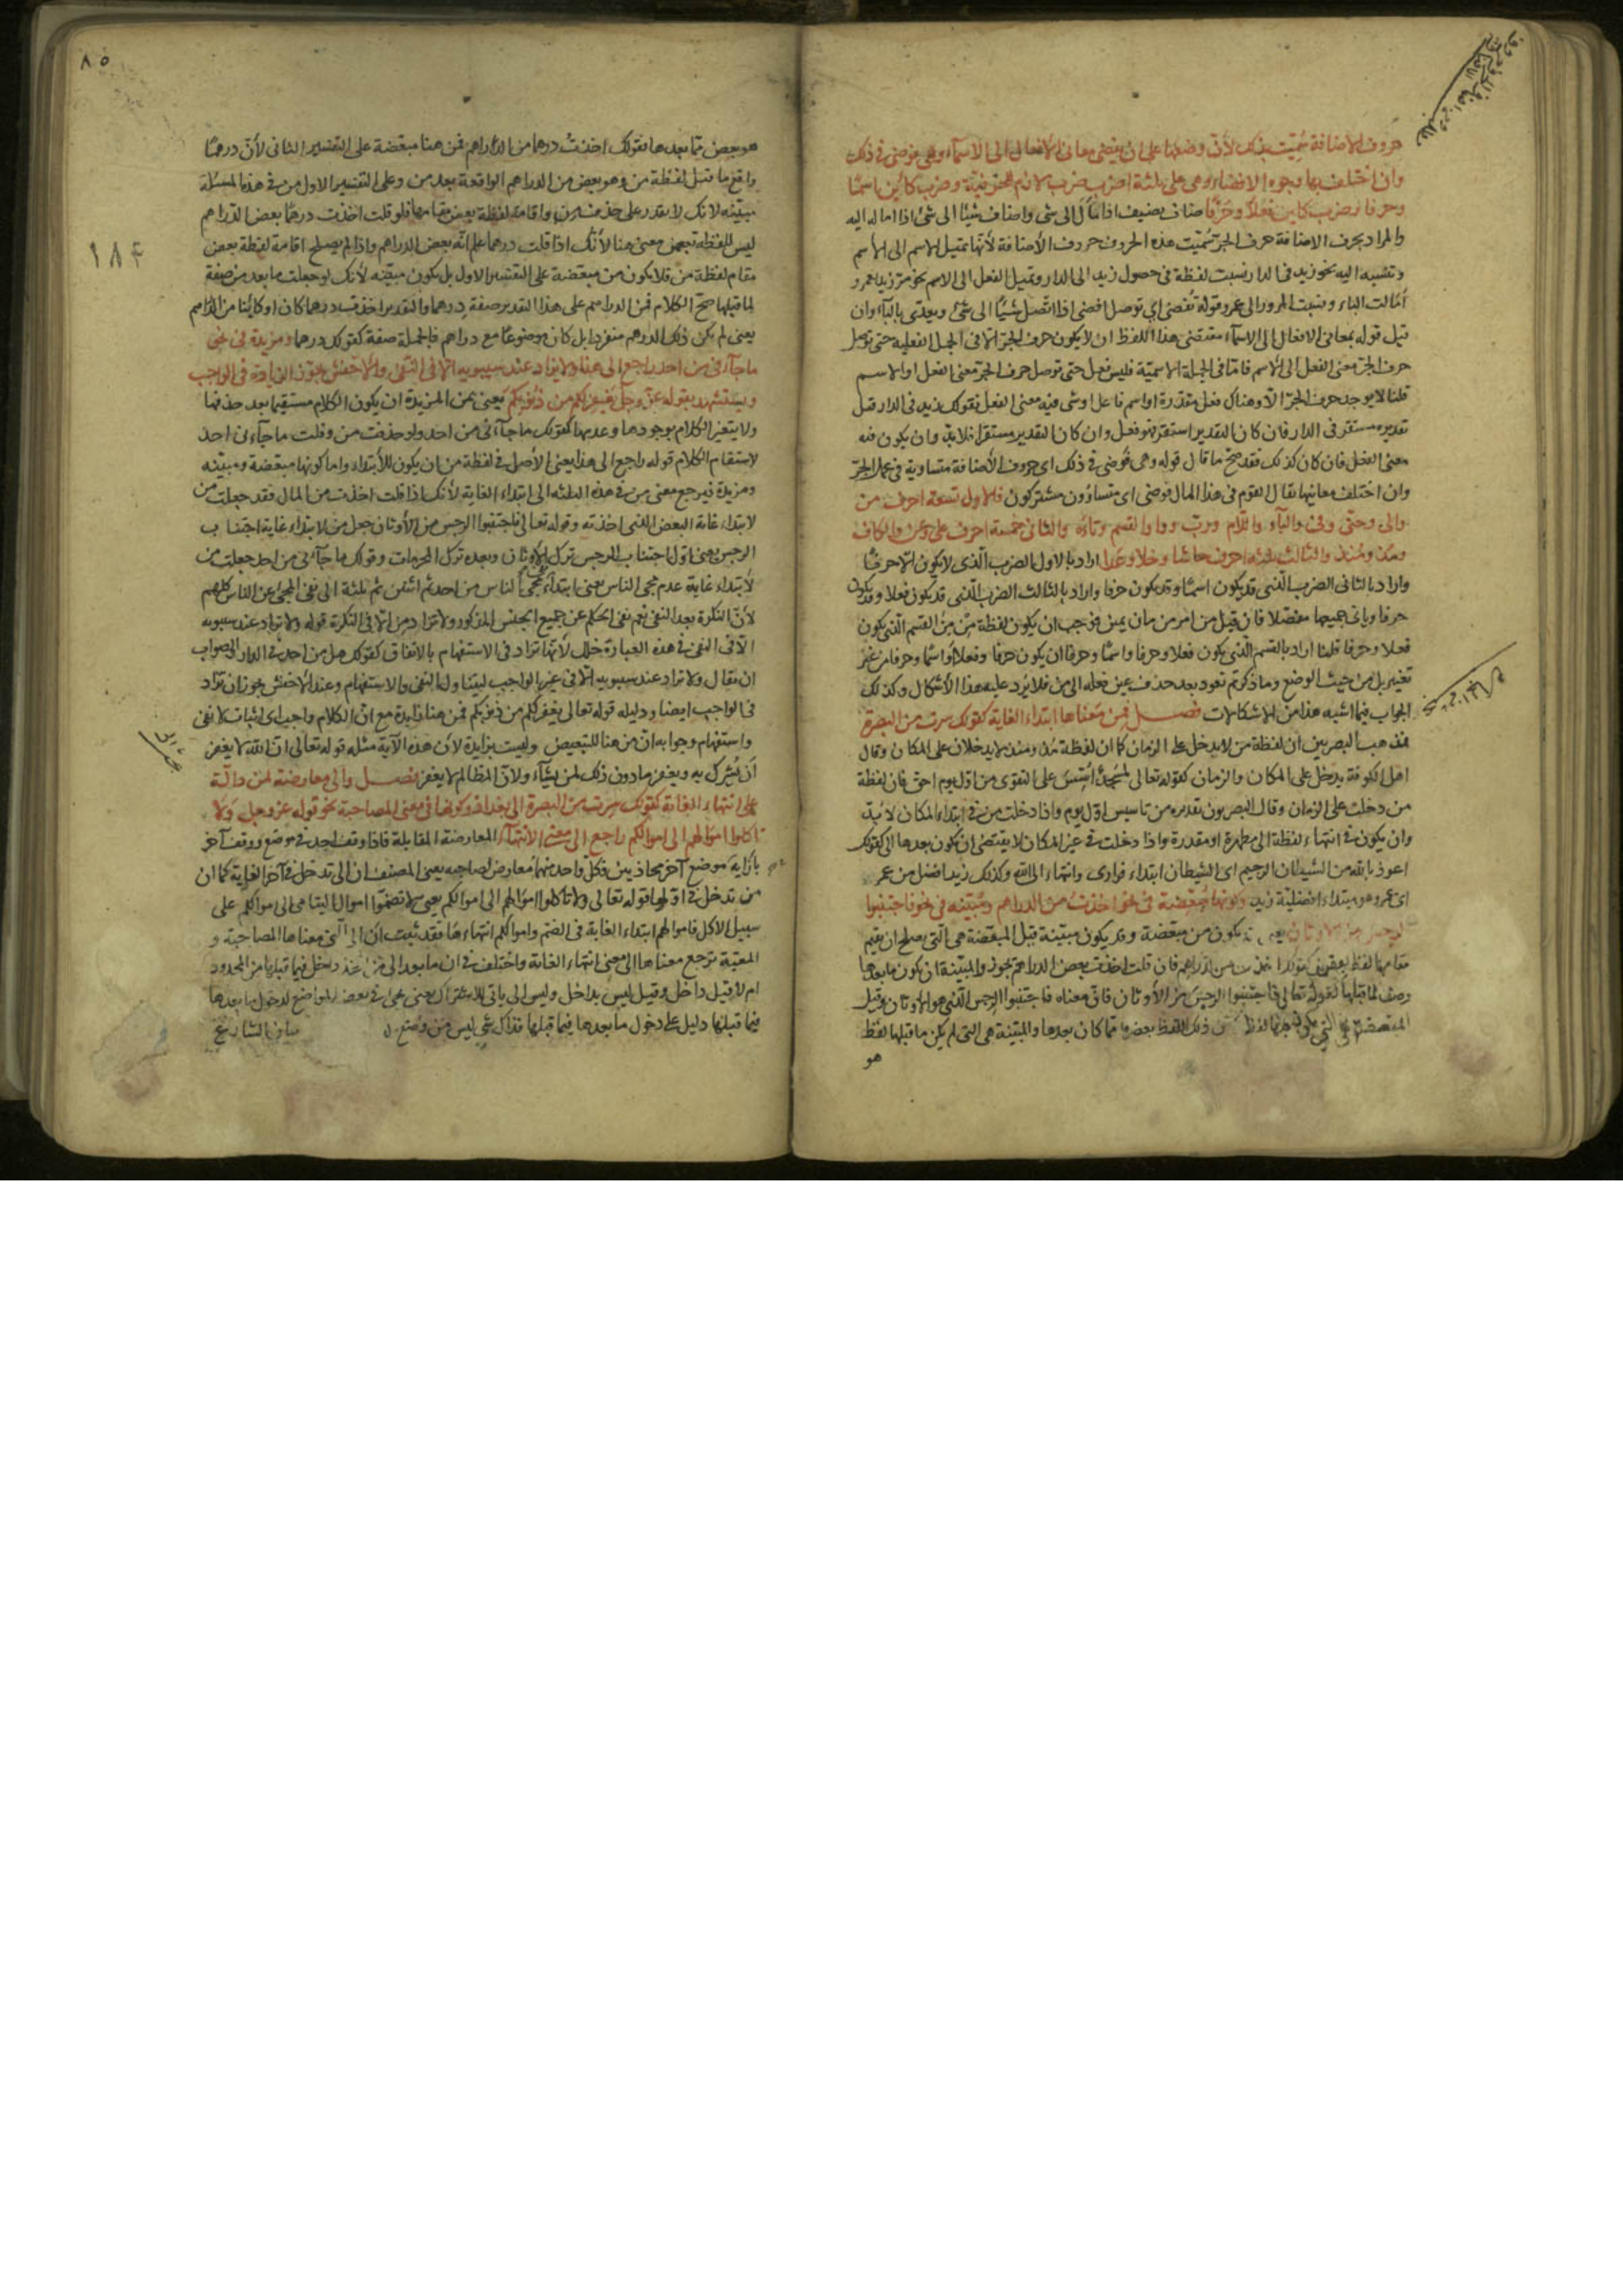 حروف الإضافة سُمّيت بذلك لأنّ وضعها على ان يفضى بمعانى الأفعال الى الأسماء وهى فوضى فى ذلك
وان اختلفت بها وجوه الإفضاء وهى على ثلثة اضرب ضرب لازم للحرفيّة وضرب كائن اسمًا
وحرفا وضرب كاين فعلًا وحرفًا اضاف يضيف اذا مال الى شى واضاف شيئًا الى شئ اذا اماله اليه
والمراد بحرف الاضافة حرف الجرّ سُمّيت هذه الحروف حروف الأضافة لأنها تميل الاسم الى الاسم
وتنسبه اليه نحو زيد فى الدار نسبت لفظة فى حصول زيد الى الدار وتميل الفعل الى الاسم نحو مررت بعمرو
أمالت الباء ونسبت المرور الى عمرو قوله تفضى اى توصل افضى اذا اتّصل شيئًا الى شئ ويعدّى بالباء وان
قيل قوله بمعانى الافعال الى الاسماء مقتضى هذا اللفظ ان لا يكون حرف الجرّ الّا فى الجمل الفعلية حتى توصل
حرف الجرّ معنى الفعل الى الاسم فامّا فى الجملة الاسميّة فليس فعل حتى توصل حرف الجرّ معنى الفعل او الاسم
قلنا لا يوجد حرف الجرّ الّا وهناك فعل مقدّر او اسم فاعل او شى فيه معنى الفعل فقولك زيد فى الدار قيل
تقديره مستقر فى الدار فان كان التقدير استقر فهو فعل وان كان التقدير مستقر فلا بد وان يكون فيه
معنى الفعل فان كان كذلك فقد صحّ ما قال قوله وهى فوضى فى ذلك اى حروف الأضافة متساوية فى عمل الجرّ
وان اختلف معانيها يقال القوم فى هذا المال فوضى اى متساوون مشتركون فالاول تسعة احرف من
والى وحتى وفى والباء واللام وربّ وواو القسم وتاؤه والثانى خمسة احرف على وعن والكاف
ومذ ومنذ والثالث ثلثة احرف حاشا وخلا وعدا اراد بالاول الضرب الّذى لا يكون الّا حرفًا
واراد بالثانى الضرب الّذى قد يكون اسمًا وقد يكون حرفا واراد بالثالث الضرب الّذى قد يكون فعلا وقد يكون
حرفا وياتى جميعها مفصّلا فان قيل من امر من مان يمين فوجب ان يكون لفظة من مِن القسم الّذى يكون
فعلا وحرفا قلنا اراد بالقسم الّذى يكون فعلا وحرفا واسمًا وحرفا ان يكون حرفا وفعلا او اسمًا وحرفا من غير
تغيير بل من حيث الوضع وما ذكرتم تعود بعد حذف عين فعله الى من فلا يَرِد عليه هذا الأشكال وكذلك
الجواب فيما اشبه هذا من الاشكالات فصل فمن مَعناها ابتداء الغاية كقولك سرت من البصرة
مذهب البصريين ان لفظة من لا يدخل على الزمان كما ان لفظة مُذ ومنذ لا يدخلان على المكان وقال
اهل الكوفة يدخل على المكان والزمان كقوله تعالى لمسجدٌ أسّس على التقوى من اوّل يوم احقّ فان لفظة
من دخلت على الزمان وقال البصريون تقديره من تاسيس اوّل يوم واذا دخلت من فى ابتداء المكان لا بُدّ
وان يكون فى انتهاء لفظة الى مظهرة او مقدرة واذا دخلت فى غير المكان لا يقتضى ان يكون بعدها الى كقولك
اعوذ بالله من الشيطان الرجيم اى الشيطان ابتداء فرارى وانتهاء الى الله وكذلك زيد افضل من عمرو
اى عمرو هو مبتداء افضليّة زيد وكونها مُبعّضة فى نحو اخذت من الدراهم ومُبيّنة فى نحو فاجتنبوا
الرجس من الاوثان يعنى قد يكون من مبعّضة وقد يكون مبيّنة قيل المبعّضة هى الّتى يصلح ان يقيم
مقامها لفظ بعض كقولك اخذت من الدراهم فان قلت اخذت بعض الدراهم يجوز والمبيّنة ان يكون ما بعدها
وصف لما قبلها كقوله تعالى فاجتنبوا الرجس من الأوثان فانّ معناه فاجتنبوا الرجس الّذى هو الأوثان وقيل
المبعضة هى التى يكون قبلها لفظ ذلك اللفظ بعض ممّا كان بعدها والمبيّنة هى التى لم يكن ما قبلها لفظ
هو
٨٥
١٨۴
هو بعض ممّا بعدها فقولك اخذتُ درهما من الدراهم فمن هنا مبعّضة على التفسير الثانى لأنّ درهمًا
واقع ما قبل لفظة من وهو بعض من الدراهم الواقعة بعد من وعلى التفسير الاول من فى هذا المسئلة
مبيّنة لانك لا تقدر على حذف من واقامة لفظة بعض مقامها فلو قلت اخذت درهمًا بعض الدراهم
ليس للفظة بعض معنى هنا لأنّك اذا قلت درهما علم انّه بعض الدراهم واذا لم يصلح اقامة لفظة بعض
مقام لفظة من فلا يكون من مبعّضة على التفسير الاول بل يكون مبيّنة لأنك لو جعلت ما بعد من صفة
لما قبلها صحّ الكلام فمن الدراهم على هذا التقدير صفة درهما والتقدير اخذت درهما كان او كائنا من الدراهم
يعنى لم يكن ذلك الدرهم منفردا بل كان موضوعًا مع دراهم فالجملة صفة كقولك درهما ومزيدة فى نحو
ما جآءنى من احد راجع الى هذا ولا يزاد عند سيبويه الّا فى النفى والأخفش يجوّز الزيادة فى الواجب
ويستشهد بقوله عزّ وجلّ يَغفِر لكم من ذُنوبِكُم يعنى بمن المزيدة ان يكون الكلام مستقيما بعد حذفها
ولا يتغير الكلام بوجودها وعدمها كقولك ما جآءنى من احد ولو حذفت من وقلت ما جآءنى احد
لاستقام الكلام قوله راجع الى هذا يعنى الأصل فى لفظة من ان يكون للأبتداء واما كونها مبعّضة ومبيّنه
ومزيدة فيرجع معنى من فى هذه الثلثه الى ابتداء الغاية لأنك اذا قلت اخذت من المال فقد جعلت من
لابتداء غاية البعض الذى اخذته وقوله تعالى فاجتنبوا الرجس من الأوثان جعل من لابتداء غاية اجتناب
الرجس يعنى اوّل اجتناب الرجس ترك الاوثان وبعده ترك المحرمات وقولك ما جآءنى من احد جعلت من
لأبتداء غاية عدم مجئ الناس يعنى ابتداء مجئ الناس من احد ثم اثنين ثم ثلثة الى نفى المجئ عن الناس كلهم
لأنّ النكرة بعد النفى تعم نفى الحكم عن جميع الجنس المذكور ولا تزاد من الّا فى النكرة قوله ولا تزاد عند سيبويه
الّا فى النفى فى هذه العبارة خلل لأنّها تزاد فى الاستفهام بالاتفاق كقولك هل من احد فى الدار والصواب
ان يقال ولا تزاد عند سيبويه الّا فى غير الواجب ليتناول النفى والاستفهام وعند الأخفش يجوز ان تزاد
فى الواجب ايضا ودليله قوله تعالى يغفر لكم من ذنوبكم فمن هنا زايدة مع انّ الكلام واجب اى اثبات لا نفى
واستفهام وجوابه انّ من هنا للتبعيض وليست بزايدة لأنّ هذه الآية مثله قوله تعالى انّ الله لا يغفر
اَن يُشرك به ويغفر ما دون ذلك لمن يشآء ولانّ المظالم لا يغفر فصل والى معارضة لمن دالّة
على انتهاء الغاية كقولك سِرت من البصرة الى بغداد وكونها فى معنى المصاحبة نحو قوله عزّ وجل وَلا
تاكلوا اموالهم الى اموالكم راجع الى معنى الأنتهآء المعارضة المقابلة فاذا وقف احد فى موضع ووقف آخر
بازايه موضع آخر محاذيين فكلّ واحد منهما معارض لصاحبه يعنى المصنف ان الى تدخل فى آخر الغاية كما ان
من تدخل فى اوّلها قوله تعالى ولا تاكلوا اموالهم الى اموالكم يعنى لا تضمّوا اموال اليتامى الى اموالكم على
سبيل الاكل فاموالهم ابتداء الغاية فى الضم واموالكم انتهاءها فقد ثبت ان الى الّتى معناها المصاحبة و
المعيّة ترجع معناها الى معنى انتهاء الغاية واختلف فى ان ما بعد الى هل يدخل فيما قبلها من المحدود
ام لا قيل داخل وقيل ليس بداخل وليس الى ياتى للاشتراك يعنى فى بعض المواضع لدخول ما بعدها
فيما قبلها دليل على دخول ما بعدها فيما قبلها فذاك شى ليس من وضع